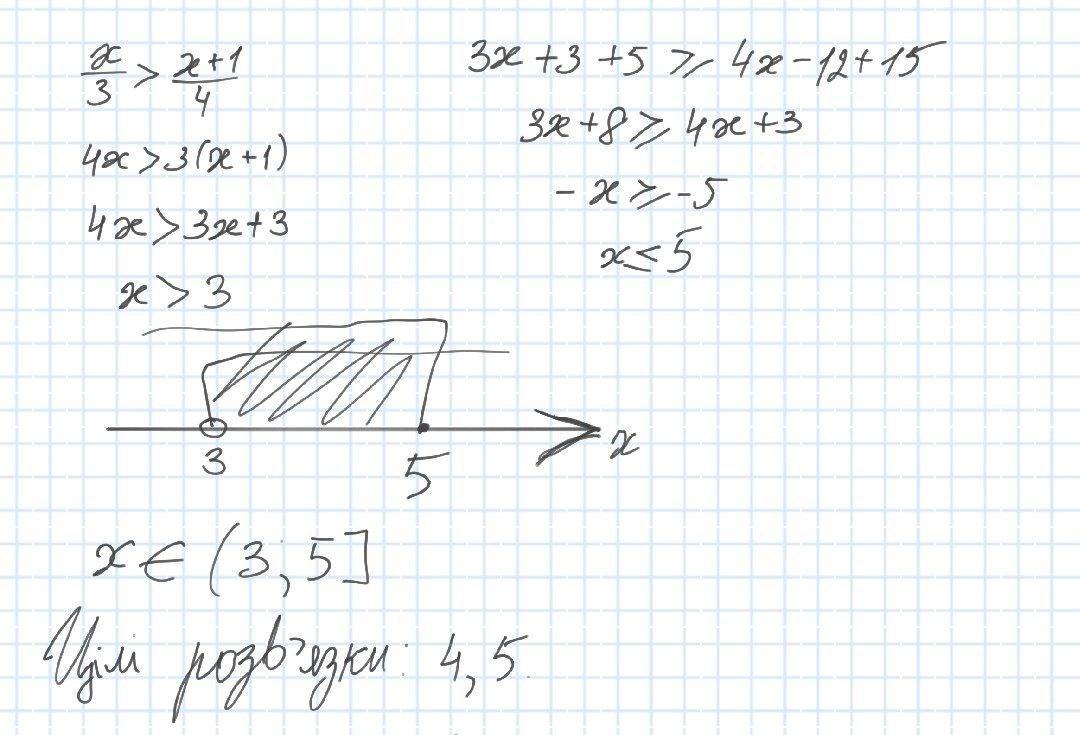 x/3 > (x+1)/4
4x > 3(x+1)
4x > 3x+3
x > 3
3x+3+5 ⩾ 4x-12+15
3x+8 ⩾ 4x+3
-x ⩾ -5
x ≤ 5
3 5 x
x ∈ (3; 5]
Цілі розв'язки: 4, 5.